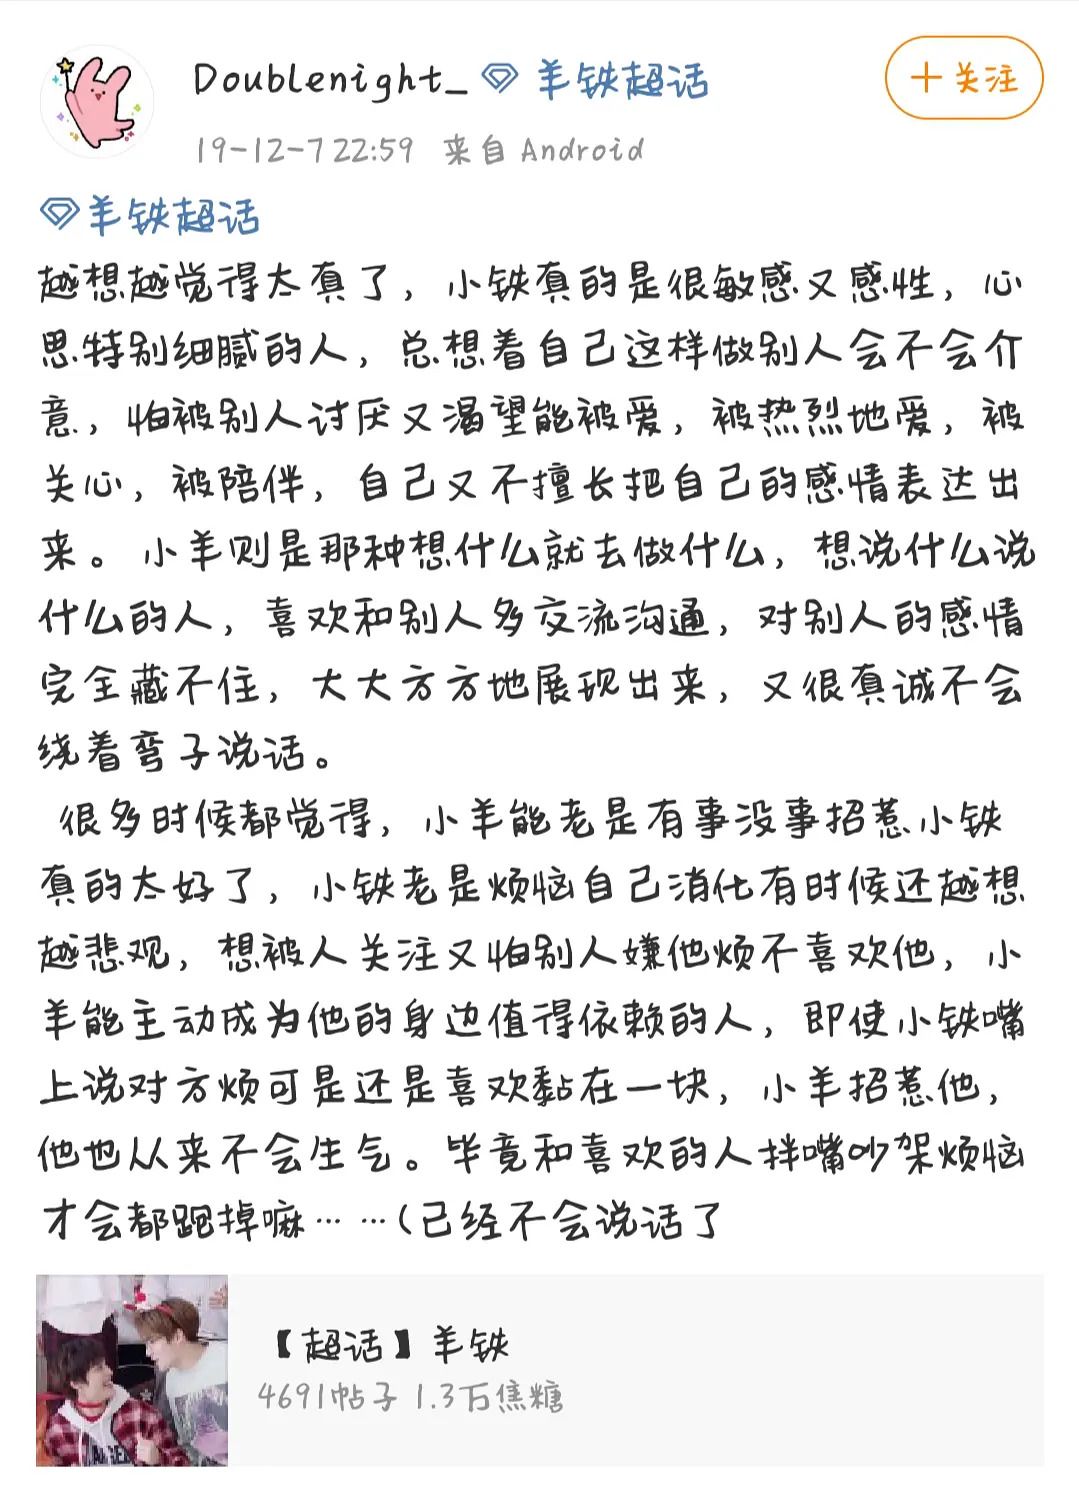 Doublenight_ 羊铁超话
+关注
19-12-7 22:59 来自 Android
羊铁超话
越想越觉得太真了，小铁真的是很敏感又感性，心
思特别细腻的人，总想着自己这样做别人会不会介
意，怕被别人讨厌又渴望能被爱，被热烈地爱，被
关心，被陪伴，自己又不擅长把自己的感情表达出
来。小羊则是那种想什么就去做什么，想说什么说
什么的人，喜欢和别人多交流沟通，对别人的感情
完全藏不住，大大方方地展现出来，又很真诚不会
绕着弯子说话。
很多时候都觉得，小羊能老是有事没事招惹小铁
真的太好了，小铁老是烦恼自己消化有时候还越想
越悲观，想被人关注又怕别人嫌他烦不喜欢他，小
羊能主动成为他的身边值得依赖的人，即使小铁嘴
上说对方烦可是还是喜欢黏在一块，小羊招惹他，
他也从来不会生气。毕竟和喜欢的人拌嘴吵架烦恼
才会都跑掉嘛… …(已经不会说话了
【超话】羊铁
4691帖子 1.3万焦糖